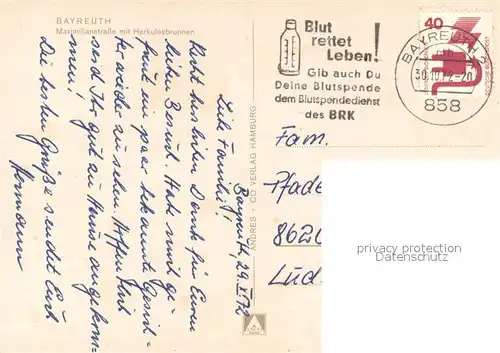 BAYREUTH
Maximilianstraße mit Herkulesbrunnen
Bayreuth, 29.X.72
Liebe Familie!
Recht herzlichen Dank für Euren
lieben Besuch. Hat mich ge-
freut ein paar bekannte Gesich-
ter wieder zu sehen. Hoffentlich
seid Ihr gut zu Hause angekom-
men!
Die besten Grüße sendet Euch
Hermann
ANDRES + CO VERLAG HAMBURG
Blut
rettet
Leben!
Gib auch Du
Deine Blutspende
dem Blutspendedienst
des BRK
BAYREUTH 2
30.10.72-20
858
40
Fam.
Pfade
8620
Lud
privacy protection
Datenschutz